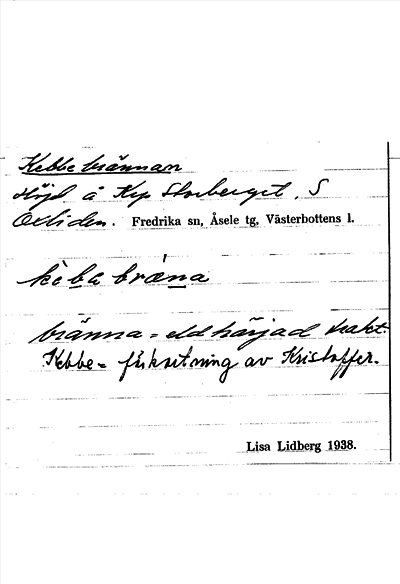 Kebbebrännan
Höjd å Krp Storberget, S
Oxliden. Fredrika sn, Åsele tg, Västerbottens l.
kèba bræ̀na
bränna = eldhärjad trakt.
Kebbe = förkortning av Kristoffer.
Lisa Lidberg 1938.